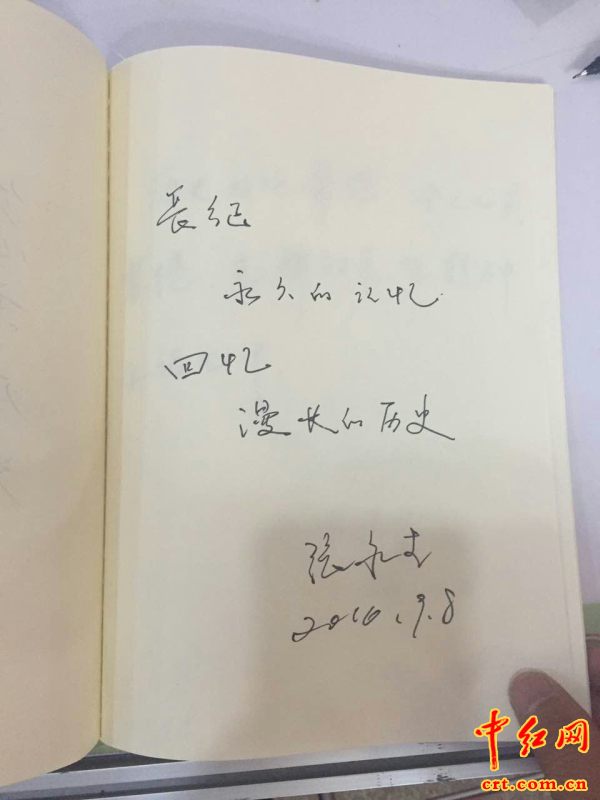 長征
永久的记忆
回忆
漫长的历史
张永
2016.9.8
中红网
crt.com.cn